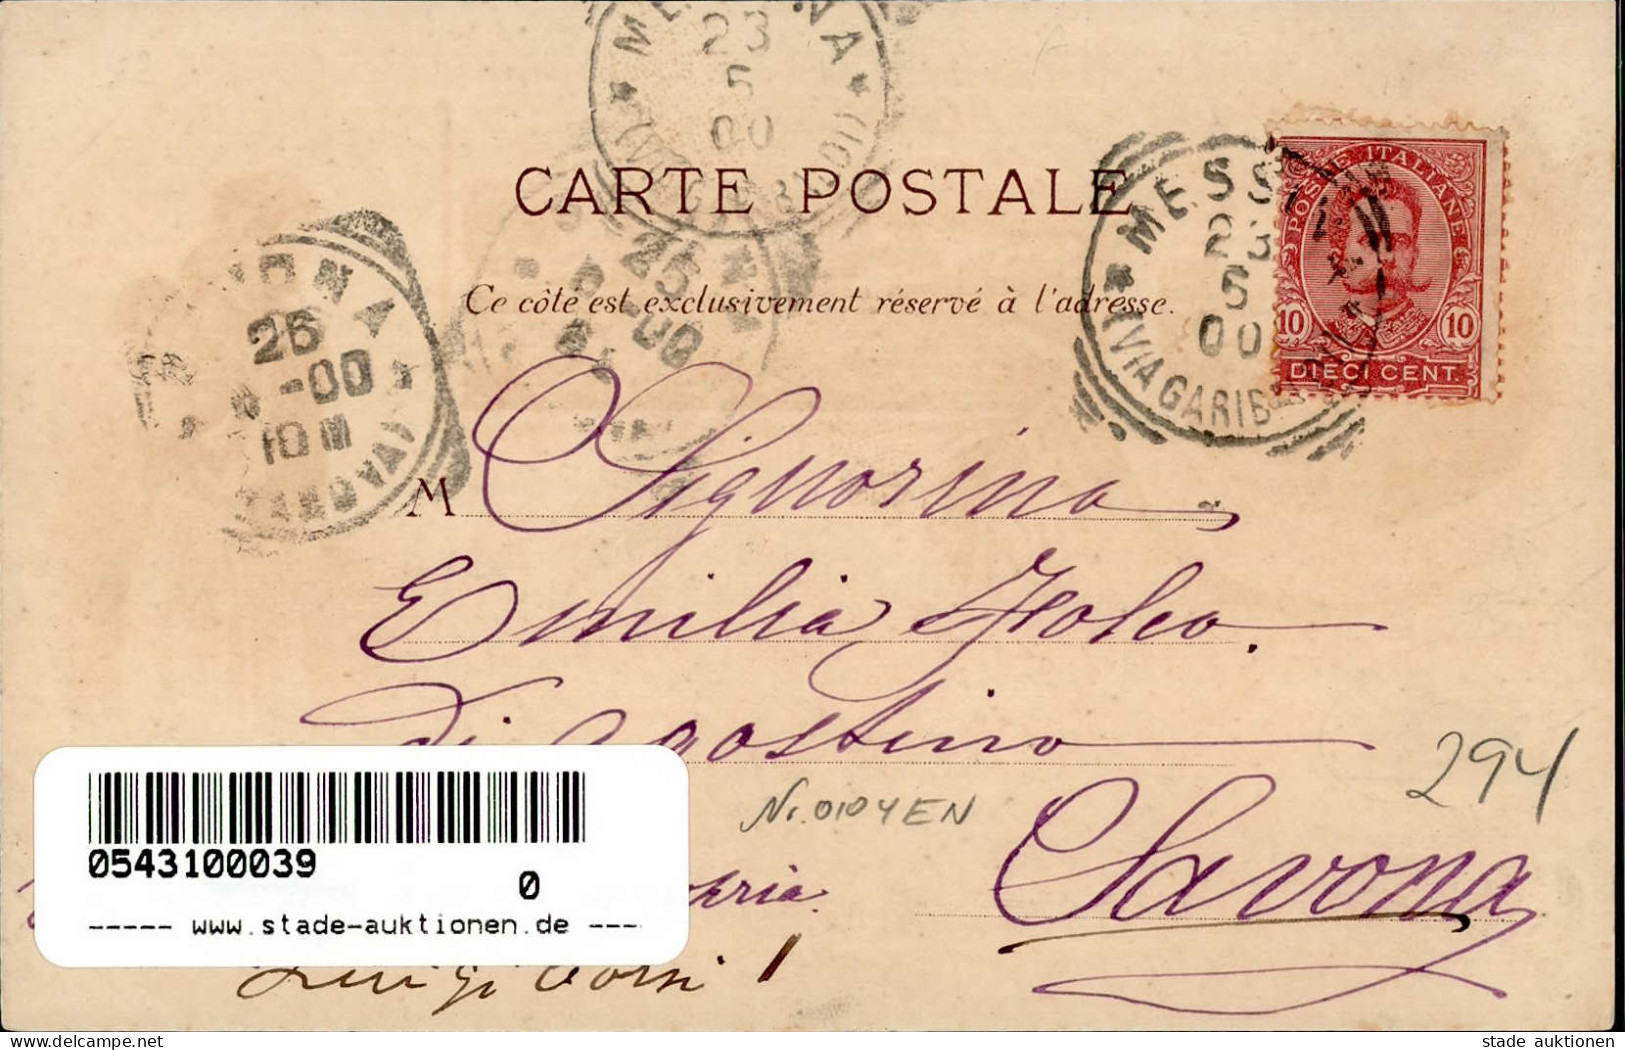 MESSINA
23
5
00
CARTE POSTALE
MESSINA
23
5
00
(VIA GARIBALDI)
POSTE ITALIANE
10 10
DIECI CENT.
25
-00
26
-00
10 M
Ce côté est exclusivement réservé à l'adresse.
M Signorina
Emilia Folco.
Di Agostino
294
Nr. 0104 EN
Savona
0543100039
0
----- www.stade-auktionen.de ---
Luigi Corsi 1
stade auktionen